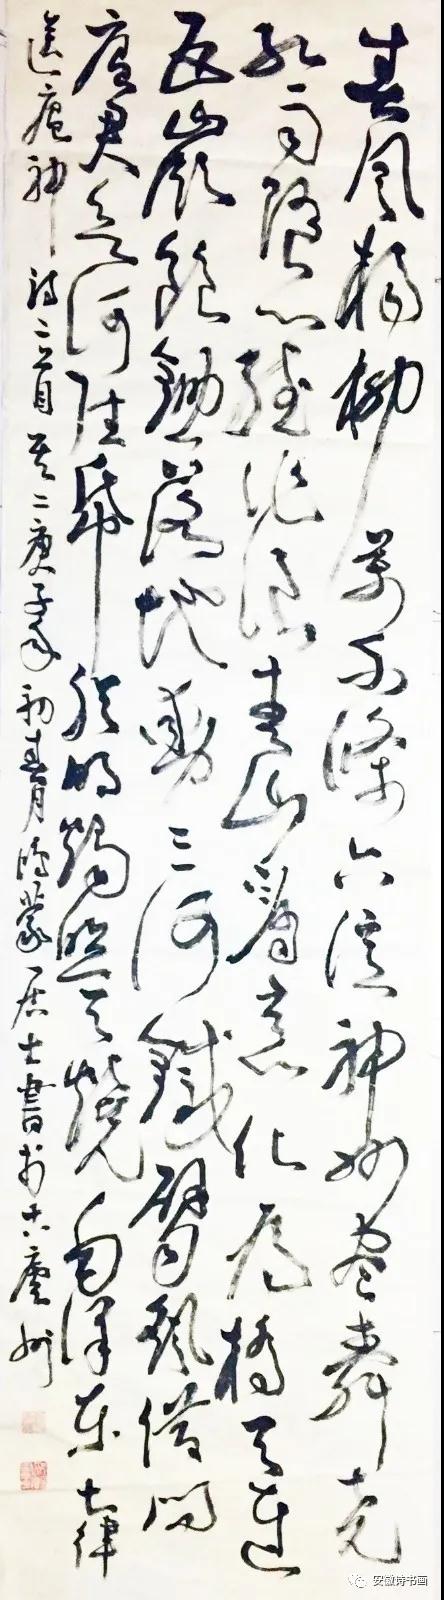 春風楊柳萬千條六億神州盡舜堯
紅雨隨心翻作浪青山着意化為橋天連
五嶺銀鋤落地動三河鐵臂搖借問
瘟君欲何往紙船明燭照天燒毛澤東七律
送瘟神詩二首其二庚子年初春月鴻蒙居士書於古廬州
安徽诗书画